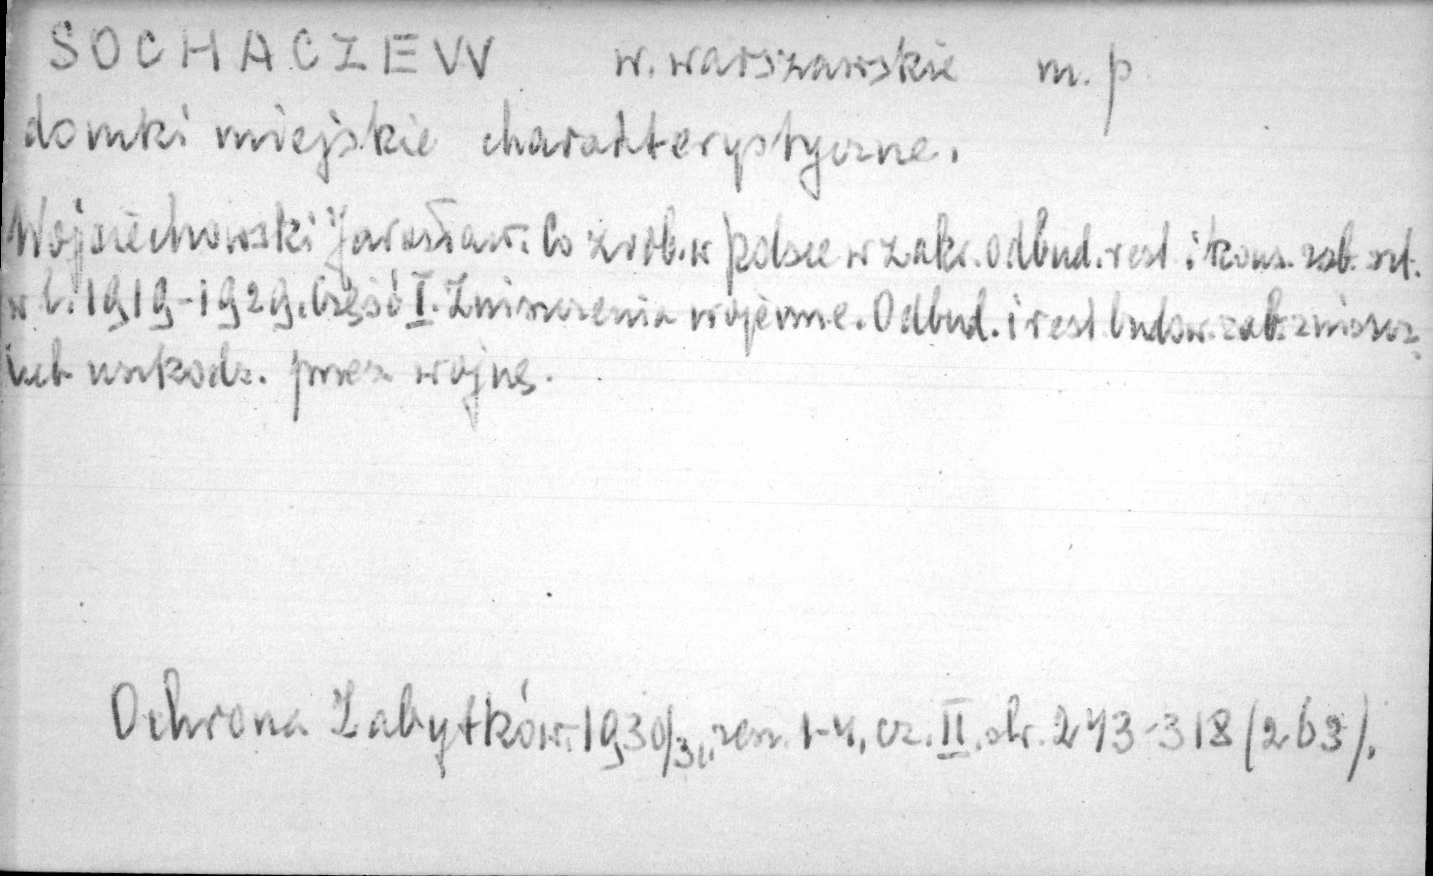 SOCHACZEW w. warszawskie m. p
domki miejskie charakterystyczne.
Wojciechowski Jarosław: Co zrob. w Polsce w zakr. odbud. rest. i kons. zab. szt.
w l. 1919-1929. Część I. Zniszczenia wojenne. Odbud. i rest. budow. zab. zniszcz.
lub uszkodz. przez wojnę.
Ochrona Zabytków. 1930/31, zesz. 1-4, cz. II, str. 243-318 (263).